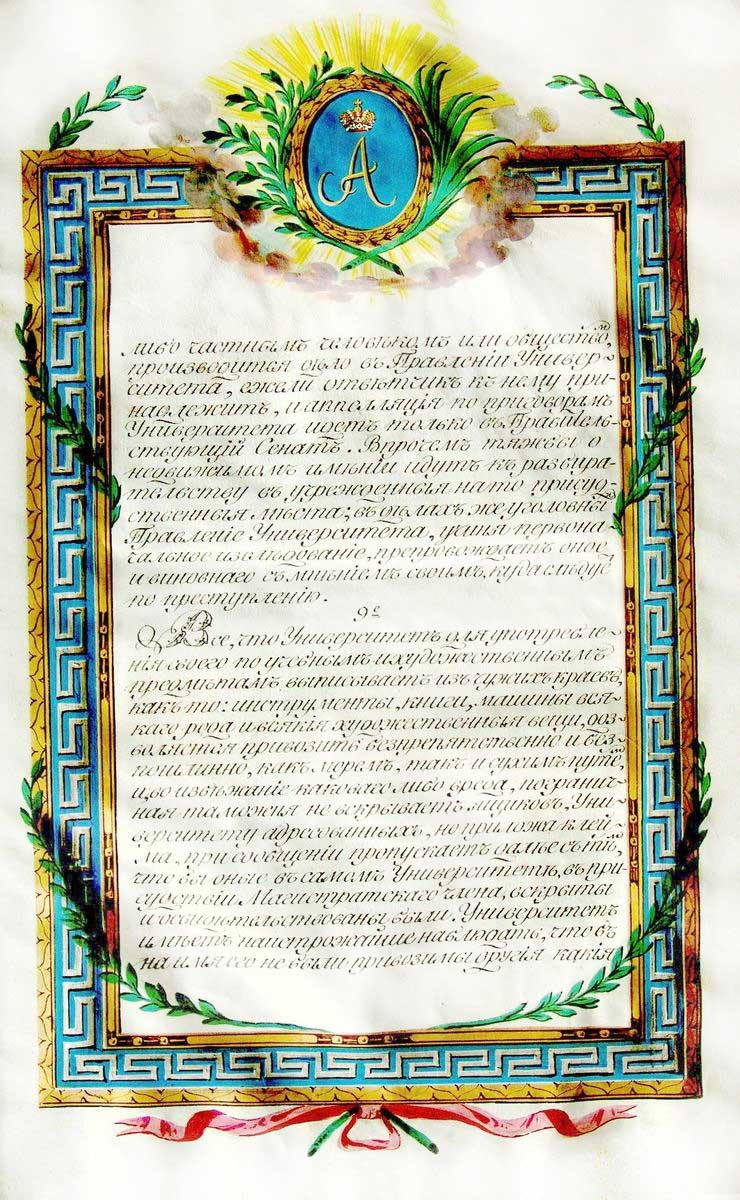 А
либо частнымъ человѣкомъ или обществомъ,
производится дѣло въ Правленіи Универ-
ситета, ежели отвѣтчикъ къ нему при-
надлежитъ, и аппелляція по приговорамъ
Университета идетъ только въ Правитель-
ствующій Сенатъ. Впрочемъ тяжбы о
недвижимомъ имѣніи идутъ къ разбира-
тельству въ учрежденныя на то присуд-
ственныя мѣста; въ дѣлахъ же уголовны
Правленіе Университета, учиня первона
чальное изслѣдованіе, препровождаетъ оное
и виновнаго съ мнѣніемъ своимъ, куда слѣдуе
по преступленію.
9е
Все, что Университетъ для употребле-
нія своего по учебнымъ и художественнымъ
предмѣтамъ выписываетъ изъ чужихъ краевъ,
какъ то: инструменты, книги, машины вся-
каго рода и всякія художественныя вещи, доз-
воляется привозить безпрепятственно и без-
пошлинно, какъ моремъ, такъ и сухимъ путемъ,
и, во избѣжаніе каковаго либо вреда, погранич-
ная таможня не вскрываетъ ящиковъ, Уни-
верситету адресованныхъ, но приложа клей-
ма, при сообщеніи пропускаетъ далѣе съ тѣмъ,
что бы оные въ самомъ Университетѣ, въ при-
судствіи Магистратскаго члена, вскрыты
и освидѣтельствованы были. Университетъ
имѣетъ наистрожайше наблюдать, что бъ
на имя его не были привозимы другія какія